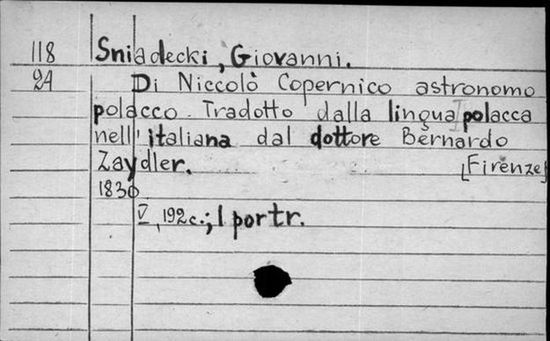 118 Sniadecki, Giovanni.
24 Di Niccolò Copernico astronomo
polacco. Tradotto dalla lingua polacca
nell'italiana dal dottore Bernardo
Zaydler. [Firenze]
1830
V, 192c.; 1 portr.